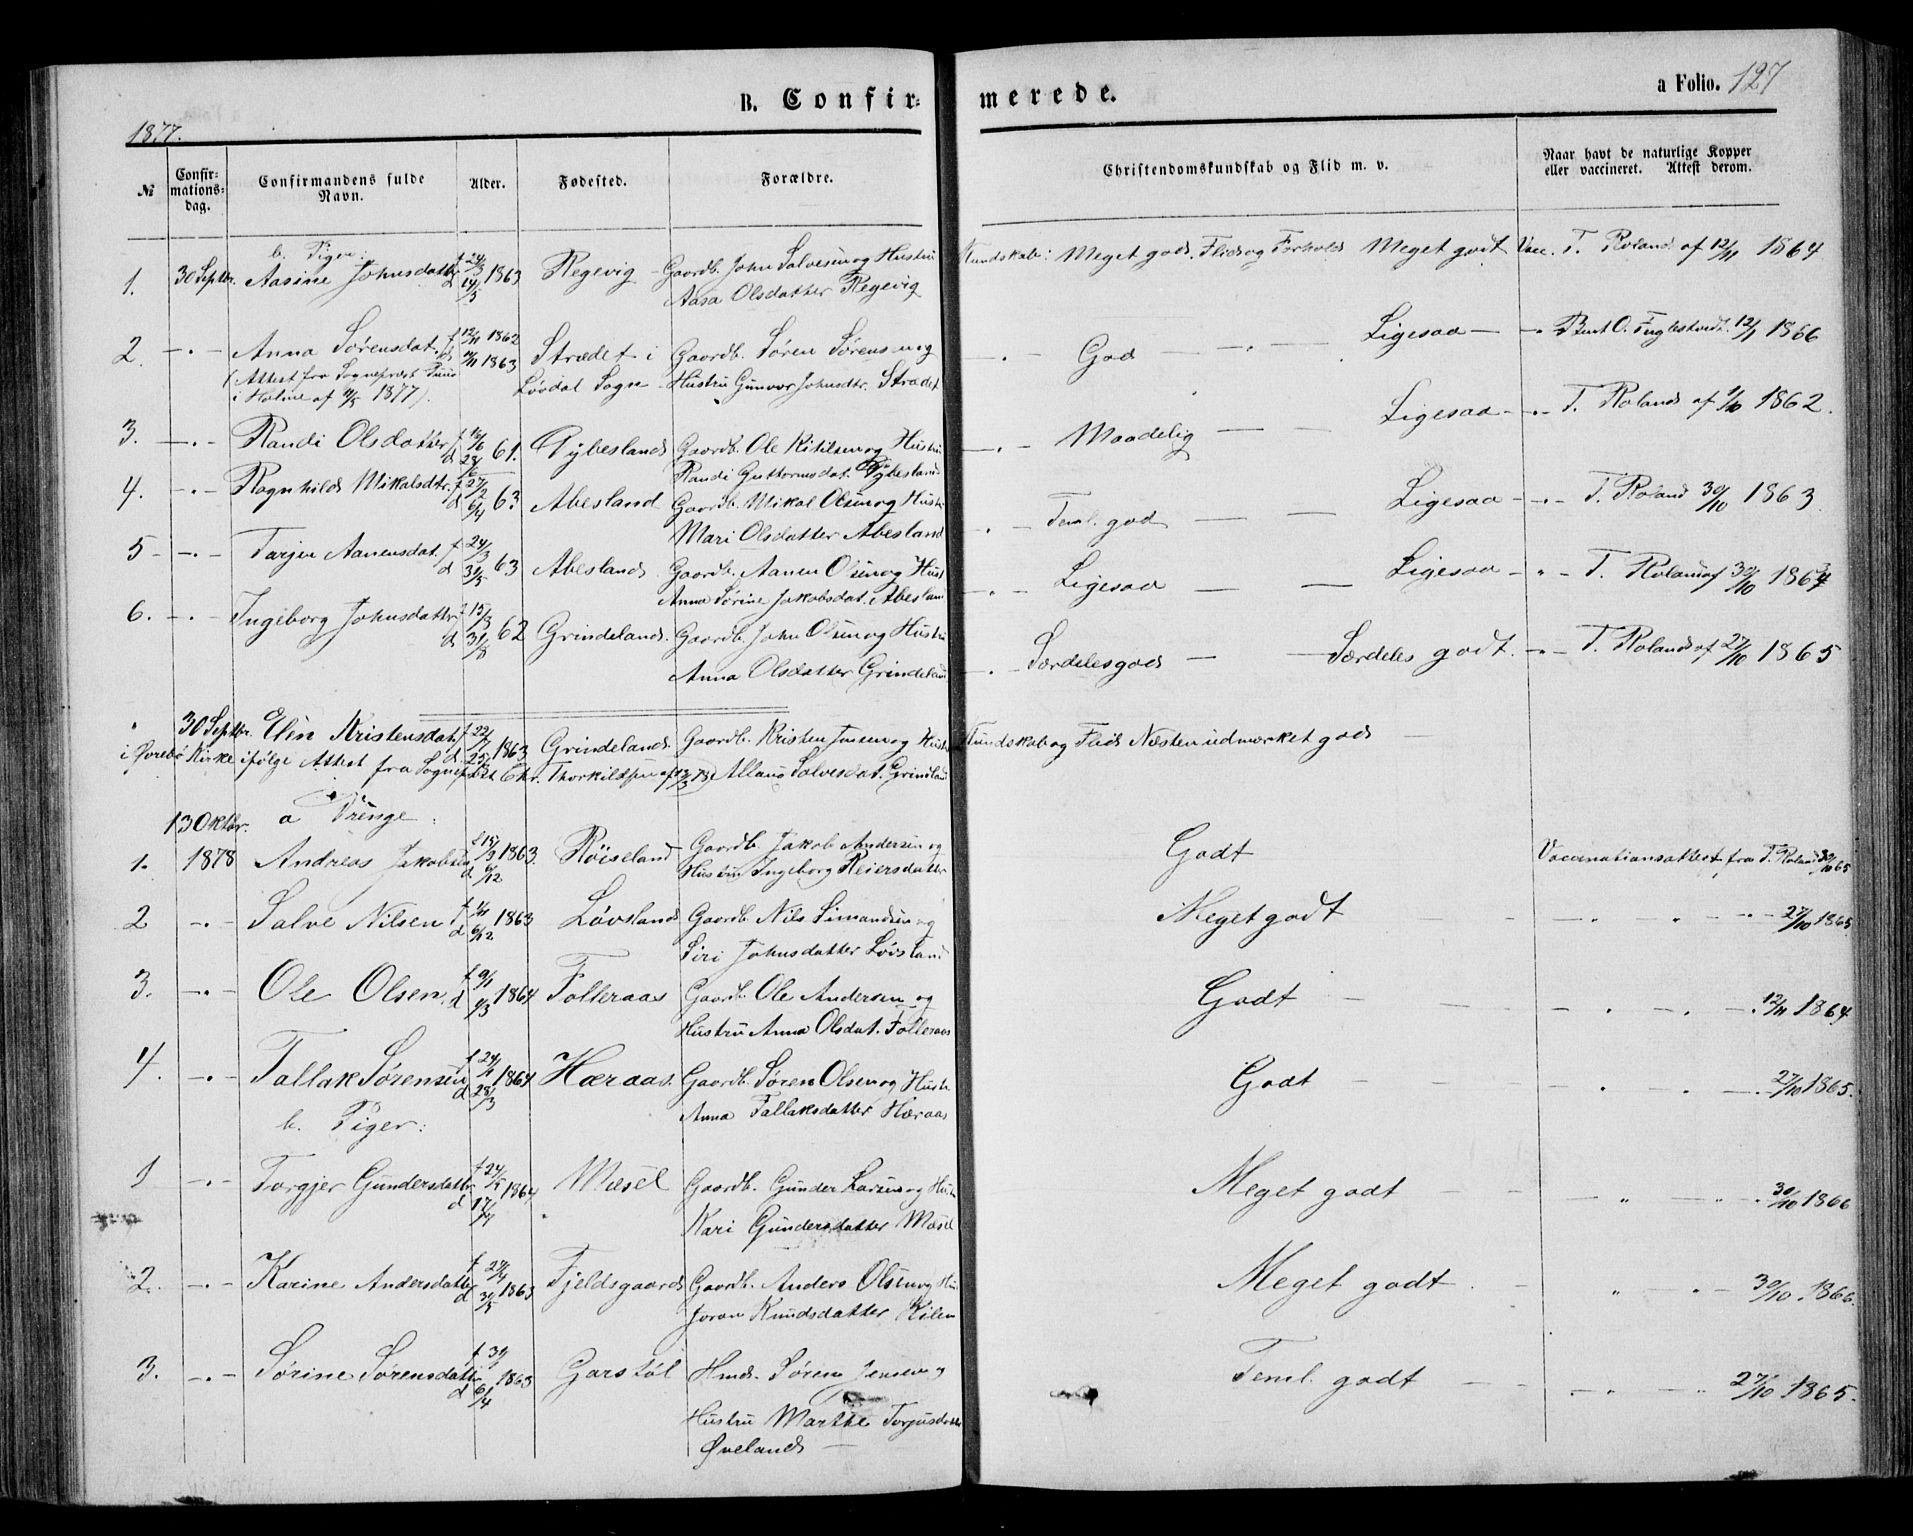 B. Confir- merede.
a Folio. 127
1877.
№ Confir-mations-dag. Confirmandens fulde Navn. Alder. Fødested. Forældre. Christendomskundskab og Flid m. v. Naar havt de naturlige Kopper eller vaccineret. Attest derom.
b. Piger:
1. 30 Septbr. Aasine Johnsdatter f 24/3 d 14/5 1863 Regevig Gaardb. John Salvesen og Hustru Kundskab: Meget god. Flid og Forhold Meget godt Vac. T. Roland af 12/11 1864
Aasa Olsdatter Regevig
2 -"- Anna Sørensdat. f 12/11 1862 d 11/1 1863 Strædet i Gaardb. Søren Sørensen og -"- God -"- Ligesaa -"- Bent O. 12/1 1866
(Attest fra Sognepræst Løvdal Sogn Hustru Gunvor Johnsdtr. Strædet
i Holme af 11/5 1877).
3. -"- Randi Olsdatter f 19/6 d 28/6 61. Gybesland Gaardb. Ole Kitilsen og Hustru -"- Maadelig Ligesaa -"- T. Roland af 1/10 1862.
Randi Guttormsdat. Gybesland
4. -"- Ragnhild Mikalsdtr. f 27/2 d 6/4 63 Abesland Gaardb. Mikal Olsen og Hust. -"- Teml. god Ligesaa -"- T. Roland 30/10 1863
Mari Olsdatter Abesland
5 -"- Tarjer Aanensdat. f 24/3 d 31/5 63 Abesland Gaardb. Aanen Olsen og Hust -"- Ligesaa Ligesaa -"- T. Roland af 30/10 1864
Anna Sørine Jakobsdat. Abesland
6. -"- Ingeborg Johnsdatter f 15/8 d 31/8 62 Grindeland. Gaardb. John Olsen og Hustru -"- Særdeles god Særdeles godt. -"- T. Roland af 27/10 1865
Anna Olsdatter Grindeland
" 30 Septbr. Elen Kristensdat. f 22/7 1863 Grindeland. Gaardb. Kristen Jensen og Hust Kundskab og Flid Næsten udmerket god
i Øvrebø Kirke ifølge Attest fra Sognepræst Chr. Thorkildsen Salvesdat. Grindland
a Drenge:
13 Oktbr.
1. 1878 Andreas Jakobsen f 18/9 d 6/12 1863. Röiseland Gaardb. Jakob Andersen og Godt Vaccinationsattest fra T. Roland 30/10 65
Hustru Ingeborg Reiersdatter
2 -"- Salve Nilsen f 1/11 d 6/12 1863 Lövsland Gaardb. Nils Simondsen og Meget godt 27/10 1865
Siri Johnsdatter Lövsland
3. -"- Ole Olsen. f 9/1 d 1/3 1864 Folleraas Gaardb. Ole Andersen og Godt 12/11 1864.
Hustru Anna Olsdat. Folleraas
4. -"- Tallak Sørensen f 24/1 d 28/3 1864 Hæraas. Gaardb. Søren Olsen og Hustr Godt 27/10 1865.
Anna Tallaksdatter Hæraas
b. Piger:
1 -"- Torgjer Gundersdatter d 17/7 1864 Mæsel Gaardb. Gunder Larsen og Hust Meget godt 30/10 1866
Kari Gundersdatter Mæsel
2. -"- Karine Andersdatter f 27/4 d 31/5 1863 Fjeldsgaard Gaardb. Anders Olsen og Hu Meget godt 30/10 1866.
Joran Knudsdatter Kilen
3. -"- Sørine Sørensdatter d 6/4 1863 Garstøl Hmd. Søren Jensen og Teml. godt 27/10 1865.
Hustru Marthe Torjusdatter
Øveland